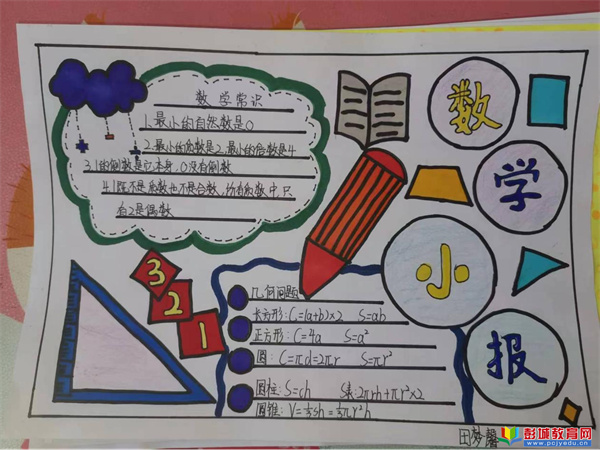 数学小报
数学常识
1.最小的自然数是0
2.最小的质数是2,最小的合数是4
3.1的倒数是它本身,0没有倒数
4.1既不是质数也不是合数,所有质数中,只
有2是偶数
3
2
1
几何问题
长方形:C=(a+b)×2 S=ab
正方形:C=4a S=a²
圆:C=πd=2πr S=πr²
圆柱:S=ch S表:2πrh+πr²×2
圆锥:V=⅓sh=⅓πr²h
彭城教育网
www.pcjyedu.cn